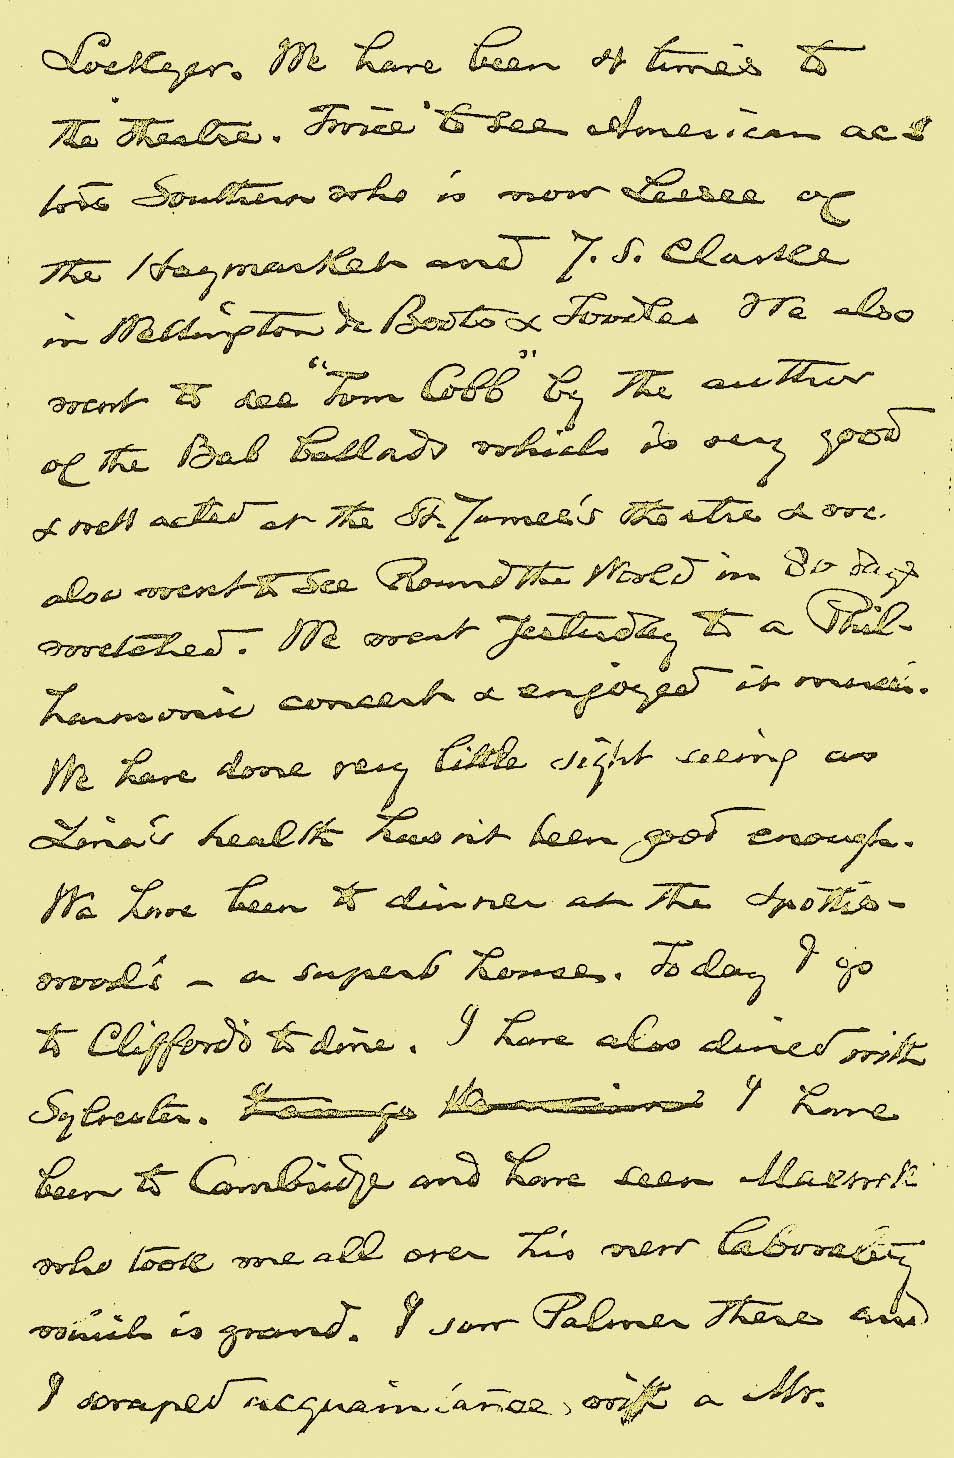 Lockyer. We have been 4 times to
the theatre. Twice to see American ac-
tors Southern who is now Lessee of
the Haymarket and J. S. Clarke
in Wellington de Boots & Toodles We also
went to see "Tom Cobb" by the author
of the Bab ballads which is very good
& well acted at the St. James's theatre & we
also went to see Round the World in 80 days
wretched. We went yesterday to a Phil-
harmonic concert & enjoyed it much.
We have done very little sight seeing as
Zina's health hasn't been good enough.
We have been to dinner at the Spottis-
wood's – a superb house. Today I go
to Clifford's to dine. I have also dined with
Sylvester. I have
been to Cambridge and have seen Maxwell
who took me all over his new laboratory
which is grand. I saw Palmer there and
I scraped acquaintance with a Mr.